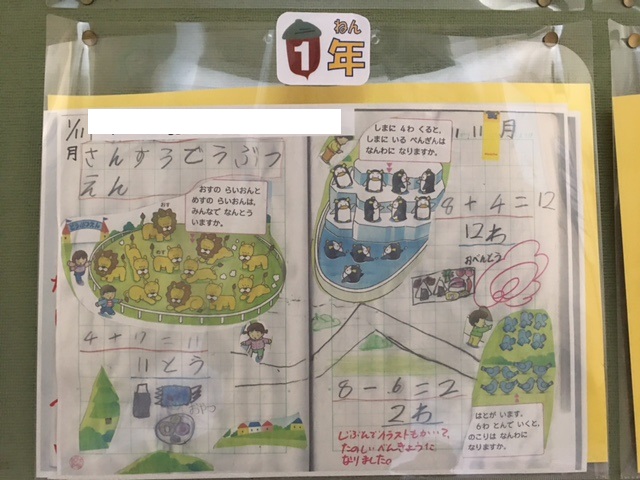 1ねん
年
1/11
月
さんすうどうぶつ
えん
おすの らいおんと
めすの らいおんは、
みんなで なんとう
いますか。
おす
めす
どうぶつえん
4+7=11
11とう
おやつ
しまに 4わ くると、
しまに いる ぺんぎんは
なんわに なりますか。
1/11月
8+4=12
12わ
おべんとう
8-6=2
2わ
はとが います。
6わ とんで いくと、
のこりは なんわに
なりますか。
じぶんでイラストもかいて、
たのしいべんきょうに
なりました。